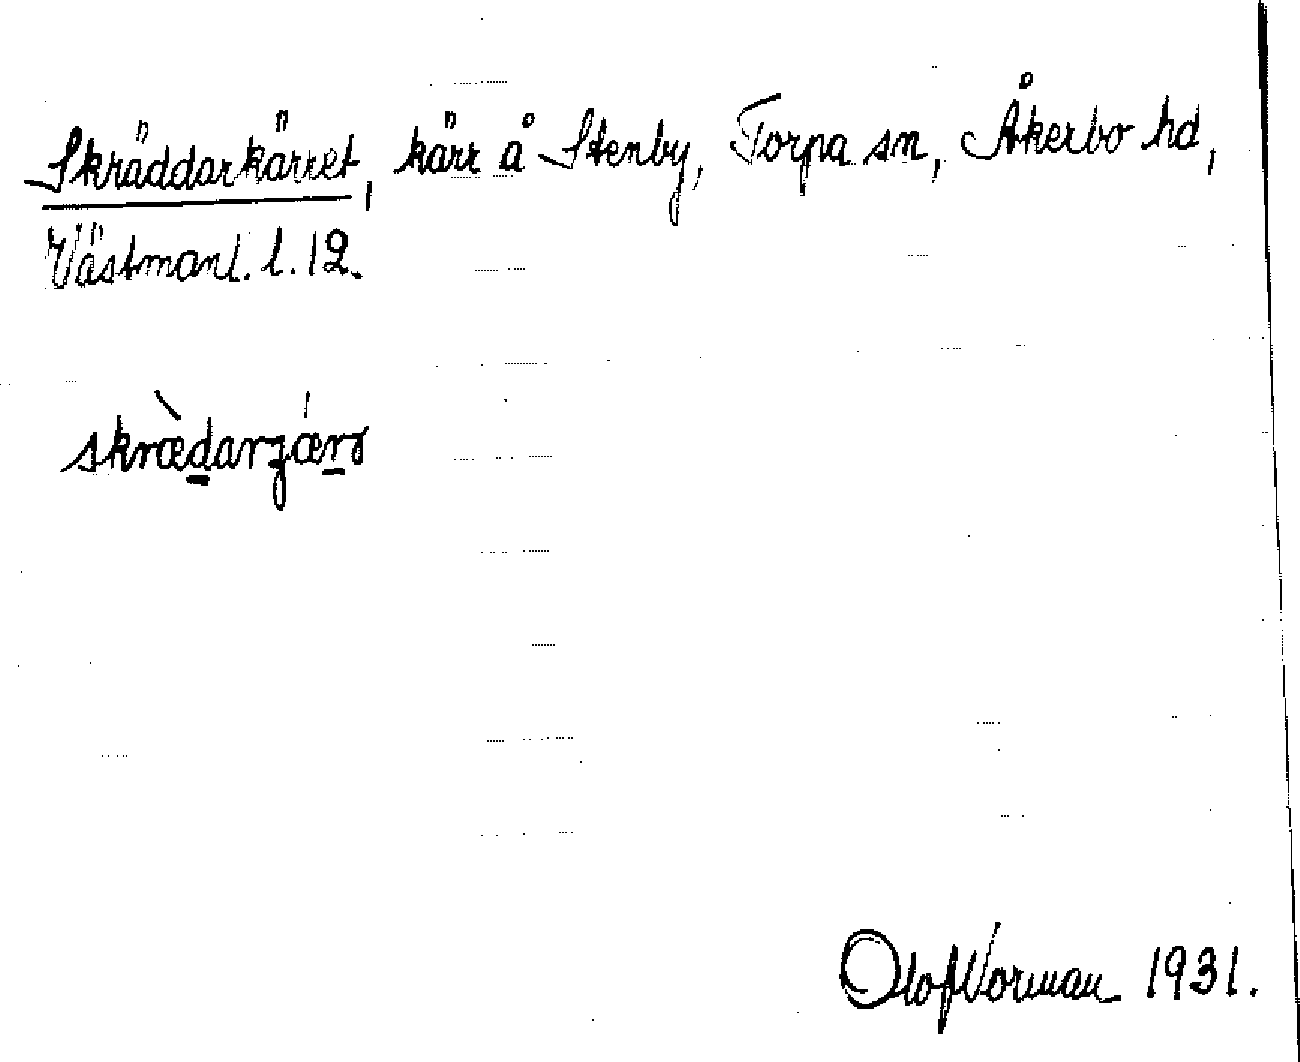 Skräddarkärret, kärr å Stenby, Torpa sn, Åkerbo hd,
Västmanl. l. 12.
skræ̀darʒǽrə
Olof Norman 1931.